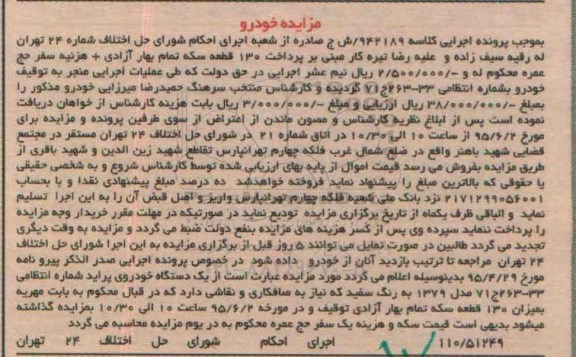 مزایده خودرو
بموجب پرونده اجرایی کلاسه ۹۴۲۱۸۹/ش ج صادره از شعبه اجرای احکام شورای حل اختلاف شماره ۲۴ تهران
له رقیه سیف زاده و علیه رضا تیره کار مبنی بر پرداخت ۱۳۰ قطعه سکه تمام بهار آزادی + هزنیه سفر حج
عمره محکوم له و -/۲/۵۰۰/۰۰۰ ریال نیم عشر اجرایی در حق دولت که طی عملیات اجرایی منجر به توقیف
خودرو بشماره انتظامی ۳۳-۲۶۳ج۷۱ گردیده و کارشناس منتخب سرهنگ حمیدرضا میرزایی خودرو مذکور را
بمبلغ -/۳۸/۰۰۰/۰۰۰ ریال ارزیابی و مبلغ -/۳/۰۰۰/۰۰۰ ریال بابت هزینه کارشناس از خواهان دریافت
نموده است پس از ابلاغ نظریه کارشناس و مصون ماندن از اعتراض از سوی طرفین پرونده و مزایده برای
مورخ ۹۵/۶/۲ از ساعت ۱۰ الی ۱۰/۳۰ در اتاق شماره ۲۱ در شورای حل اختلاف ۲۴ تهران مستقر در مجتمع
قضایی شهید باهنر واقع در ضلع شمال غرب فلکه چهارم تهرانپارس تقاطع شهید زین الدین و شهید باقری از
طریق مزایده بفروش می رسد قیمت اموال از پایه بهای ارزیابی شده توسط کارشناس شروع و به شخصی حقیقی
یا حقوقی که بالاترین مبلغ را پیشنهاد نماید فروخته خواهدشد ده درصد مبلغ پیشنهادی نقدا و با بحساب
۲۱۷۱۲۹۹۰۵۶۰۰۱ نزد بانک ملی شعبه فلکه چهارم تهرانپارس واریز و اصل قبض آن را به این اجرا تسلیم
نماید و الباقی ظرف یکماه از تاریخ برگزاری مزایده تودیع نماید در صورتیکه در مهلت مقرر خریدار وجه مزایده
را پرداخت ننماید سپرده وی پس از کسر هزینه های مزایده بنفع دولت ضبط می گردد و مزایده به وقت دیگری
تجدید می گردد طالبین در صورت تمایل می توانند ۵ روز قبل از برگزاری مزایده به این اجرا شورای حل اختلاف
۲۴ تهران مراجعه تا ترتیب بازدید آنان از خودرو داده شود در خصوص پرونده اجرایی صدر الذکر پیرو نامه
مورخ ۹۵/۴/۲۹ بدینوسیله اعلام می گردد مورد مزایده عبارت است از یک دستگاه خودروی پراید شماره انتظامی
۳۳-۲۶۳ج۷۱ مدل ۱۳۷۹ به رنگ سفید که نیاز به صافکاری و نقاشی دارد که در قبال محکوم به بابت مهریه
بمیزان ۱۳۰ قطعه سکه تمام بهار آزادی توقیف و در مورخه ۹۵/۶/۲ ساعت ۱۰ الی ۱۰/۳۰ بمزایده گذاشته
میشود بدیهی است قیمت سکه و هزینه یک سفر حج عمره محکوم به در یوم مزایده محاسبه می گردد
۱۱۰/۵۱۲۴۹ اجرای احکام شورای حل اختلاف ۲۴ تهران